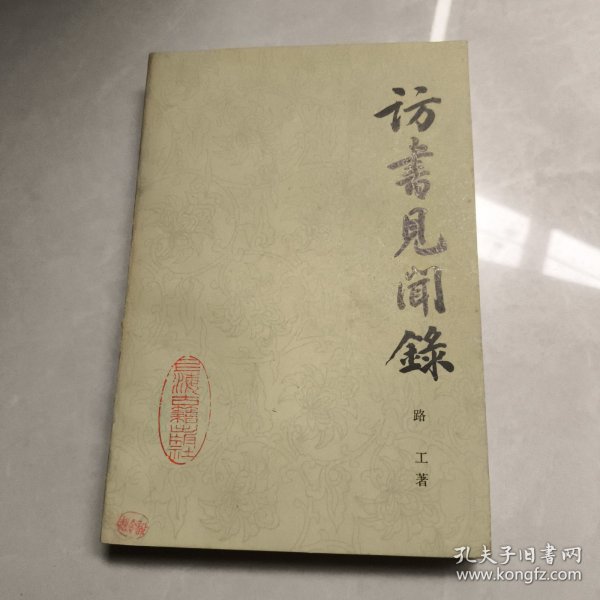 訪書見聞錄
路工著
上海古籍出版社
孔夫子旧书网
www.kongfz.com